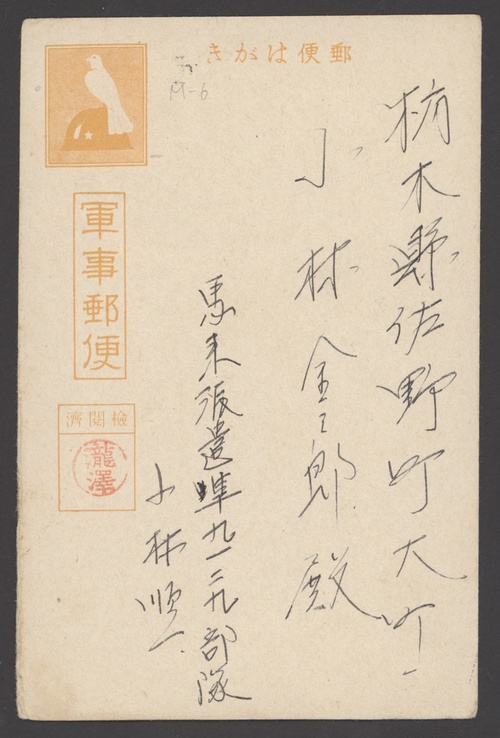 郵便はがき
M-6
栃木縣佐野町大町
小林金三郎殿
馬来派遣岡九一二九部隊
小林順一
軍事郵便
檢閲濟
瀧澤